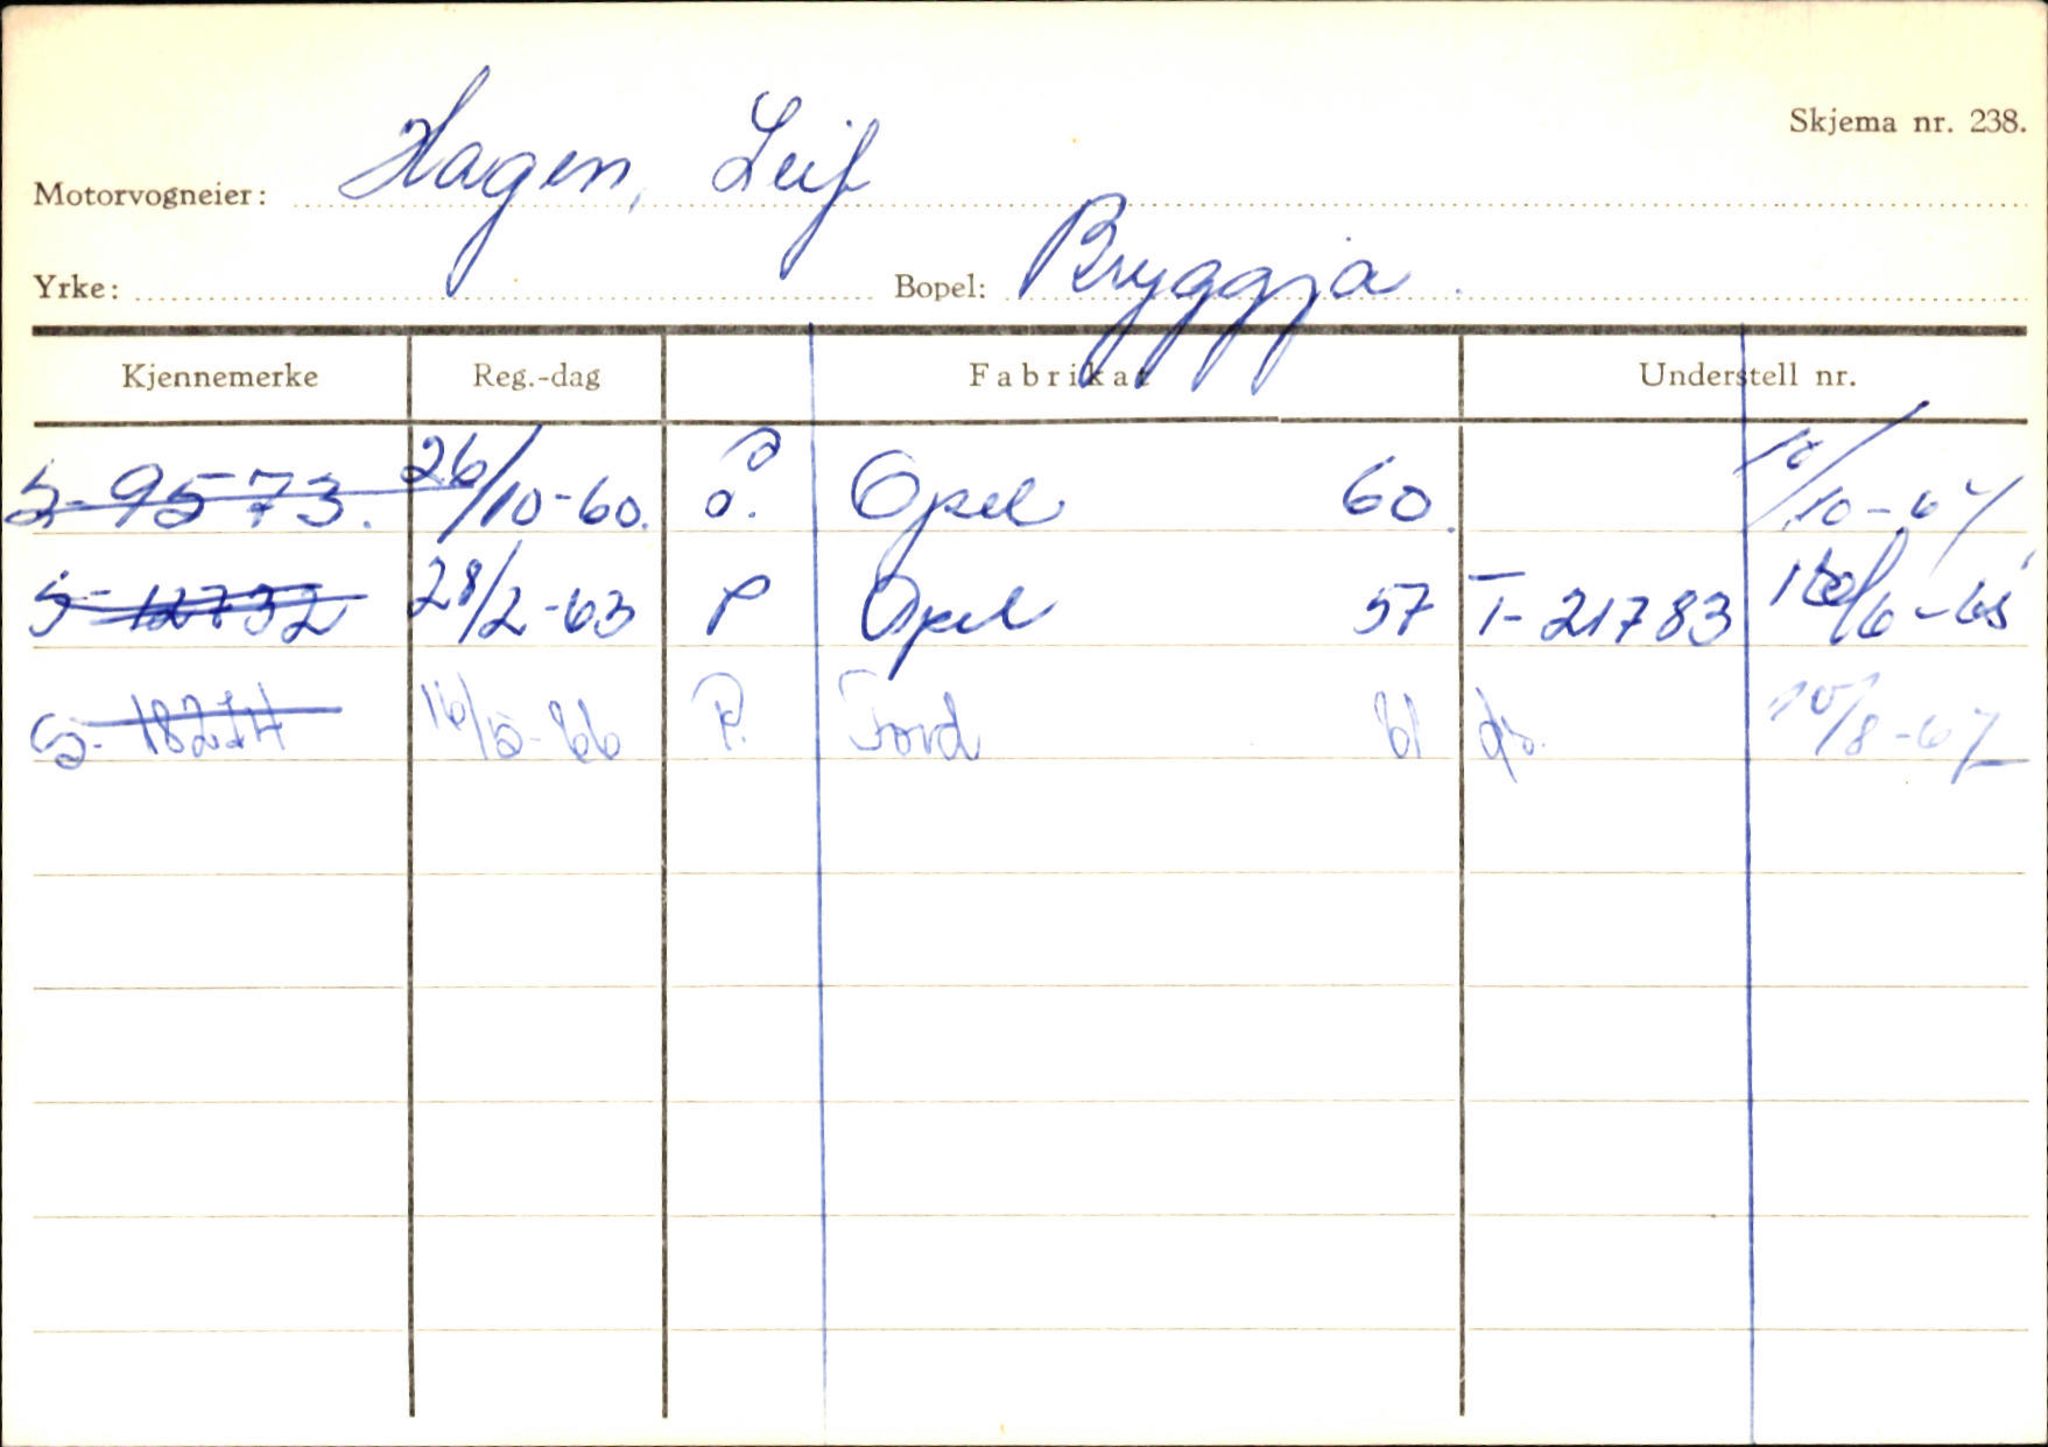 Skjema nr. 238.
Motorvogneier: Hagen, Leif
Yrke: Bopel: Bryggja.
Kjennemerke Reg.-dag Fabrikat Understell nr.
S-9573. 26/10-60. Opel 60. /10-6
S-12732 28/2-63 P Opel 57 T-21783 /6-65
S-18214 16/5-66 P. Ford 61 10/8-67